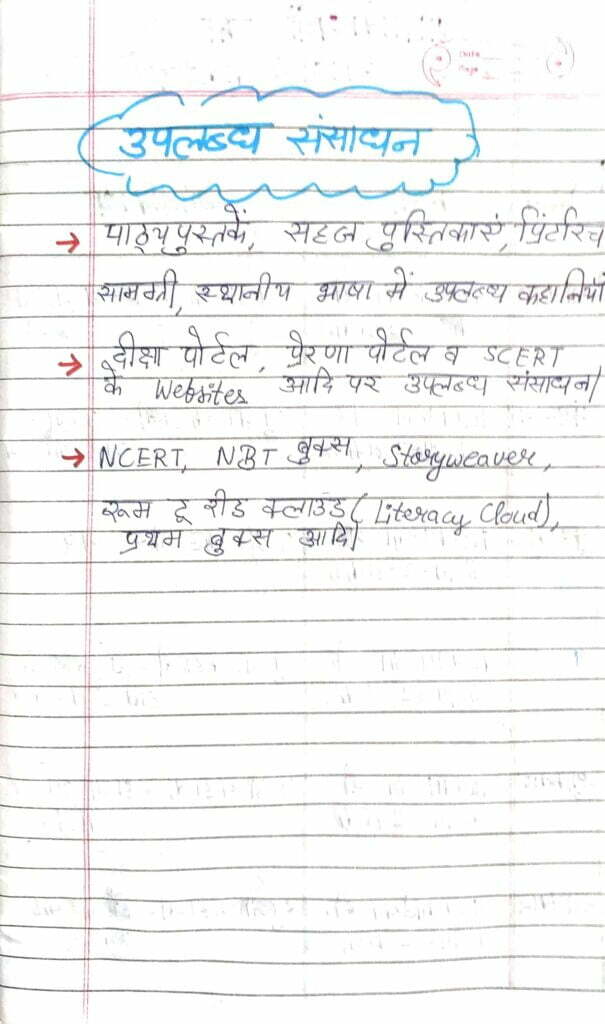 Date
Page
उपलब्ध संसाधन
→ पाठ्यपुस्तकें, सहज पुस्तिकाएं, प्रिंटरिच
सामग्री, स्थानीय भाषा में उपलब्ध कहानियां
→ दीक्षा पोर्टल, प्रेरणा पोर्टल व SCERT
के Websites आदि पर उपलब्ध संसाधन।
→ NCERT, NBT बुक्स, Storyweaver,
रूम टू रीड क्लाउड (Literacy Cloud),
प्रथम बुक्स आदि।